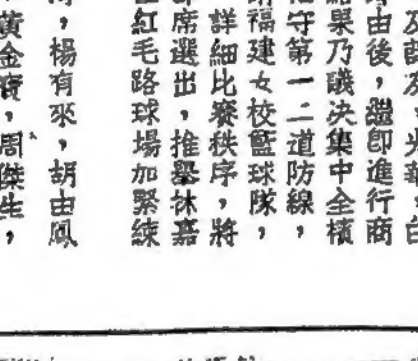 白
由後，繼即進行商
果乃議決集中全權
守第一二道防線，
福建女校籃球隊，
詳細比賽秩序，將
席選出，推舉林嘉
紅毛路球場加緊練
，楊有來，胡由鳳
黃金寶，周傑生，